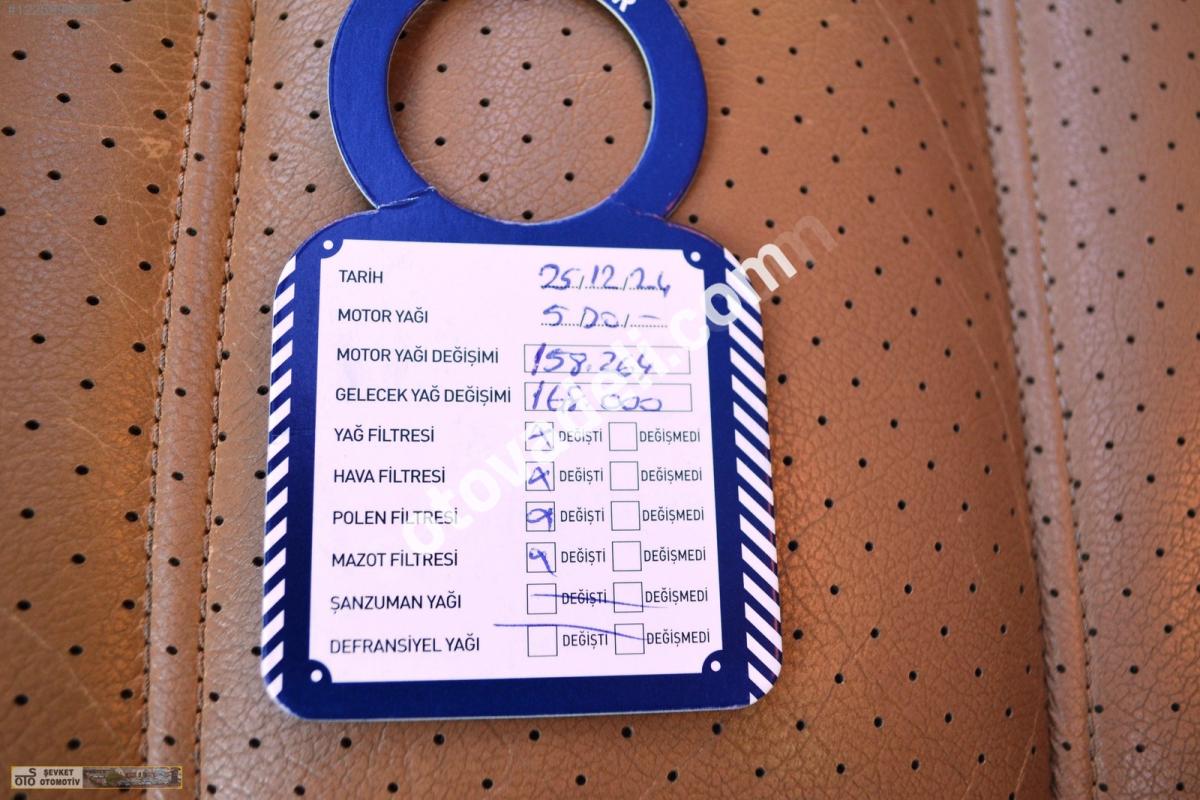 TARİH 25.12.24
MOTOR YAĞI
MOTOR YAĞI DEĞİŞİMİ 158.264
GELECEK YAĞ DEĞİŞİMİ 168.000
YAĞ FİLTRESİ DEĞİŞTİ DEĞİŞMEDİ
HAVA FİLTRESİ DEĞİŞTİ DEĞİŞMEDİ
POLEN FİLTRESİ DEĞİŞTİ DEĞİŞMEDİ
MAZOT FİLTRESİ DEĞİŞTİ DEĞİŞMEDİ
ŞANZUMAN YAĞI DEĞİŞTİ DEĞİŞMEDİ
DEFRANSİYEL YAĞI DEĞİŞTİ DEĞİŞMEDİ
ŞEVKET
OTOMOTİV